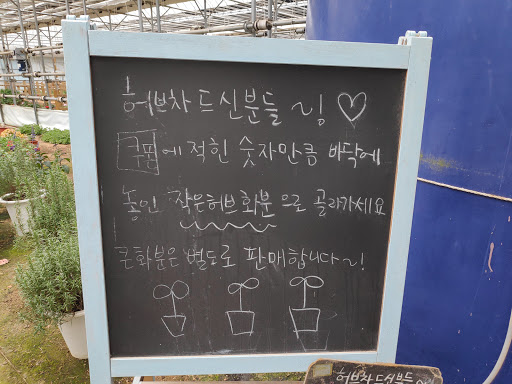 허브차 드신분들 ~! ♡
쿠폼에 적힌 숫자만큼 바닥에
놓인 작은허브화분으로 골라가세요
큰화분은 별도로 판매합니다~!
허브차 드신분들